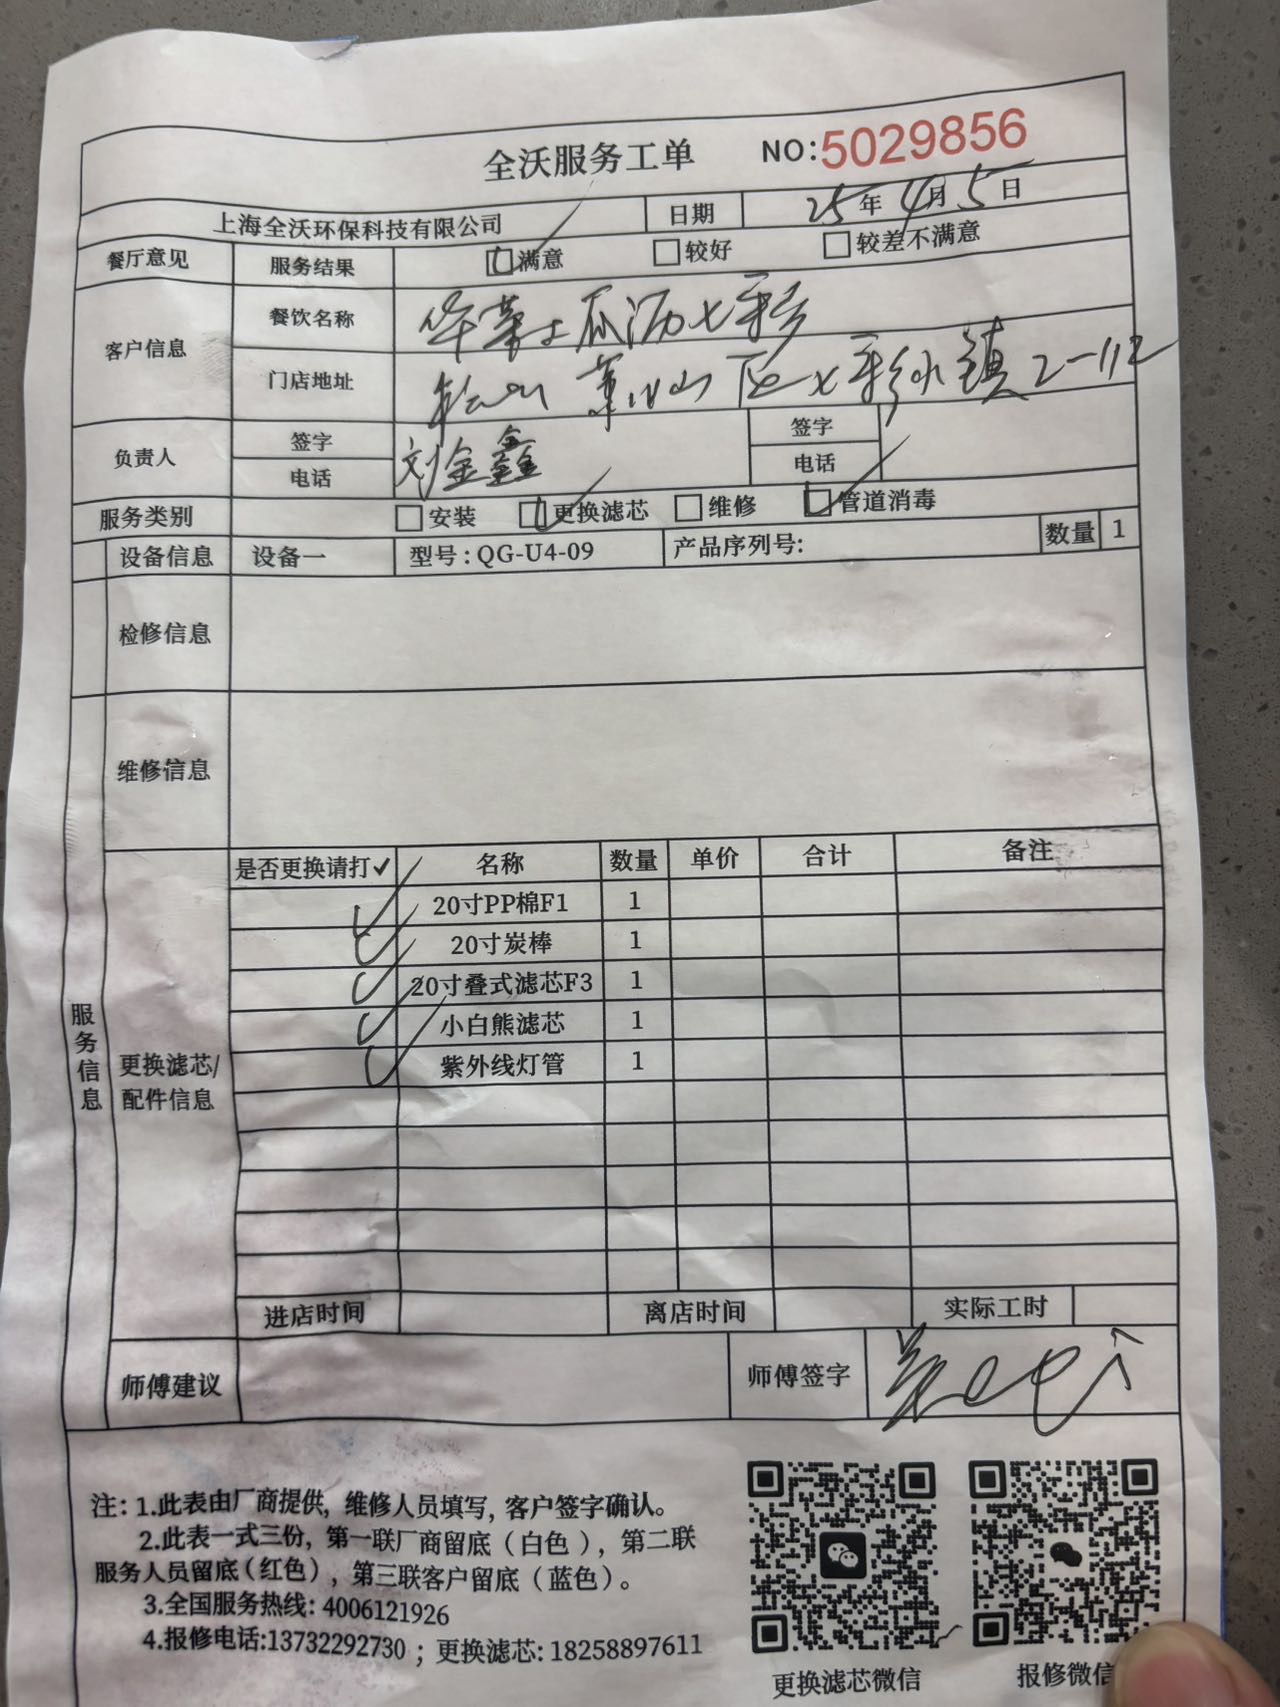 全沃服务工单 NO:5029856
上海全沃环保科技有限公司 日期 25年4月5日
餐厅意见 服务结果 满意 较好 较差不满意
客户信息 餐饮名称 华莱士瓜沥七彩
门店地址 萧山区七彩小镇2-112
负责人 签字 刘金鑫 签字
电话 电话
服务类别 安装 更换滤芯 维修 管道消毒
设备信息 设备一 型号:QG-U4-09 产品序列号: 数量 1
检修信息
维修信息
服务信息
更换滤芯/
配件信息
是否更换请打✓ 名称 数量 单价 合计 备注
✓ 20寸PP棉F1 1
✓ 20寸炭棒 1
✓ 20寸叠式滤芯F3 1
✓ 小白熊滤芯 1
✓ 紫外线灯管 1
进店时间 离店时间 实际工时
师傅建议 师傅签字
注: 1.此表由厂商提供, 维修人员填写, 客户签字确认。
2.此表一式三份, 第一联厂商留底(白色), 第二联
服务人员留底(红色), 第三联客户留底(蓝色)。
3.全国服务热线: 4006121926
4.报修电话:13732292730 ; 更换滤芯: 18258897611
更换滤芯微信 报修微信